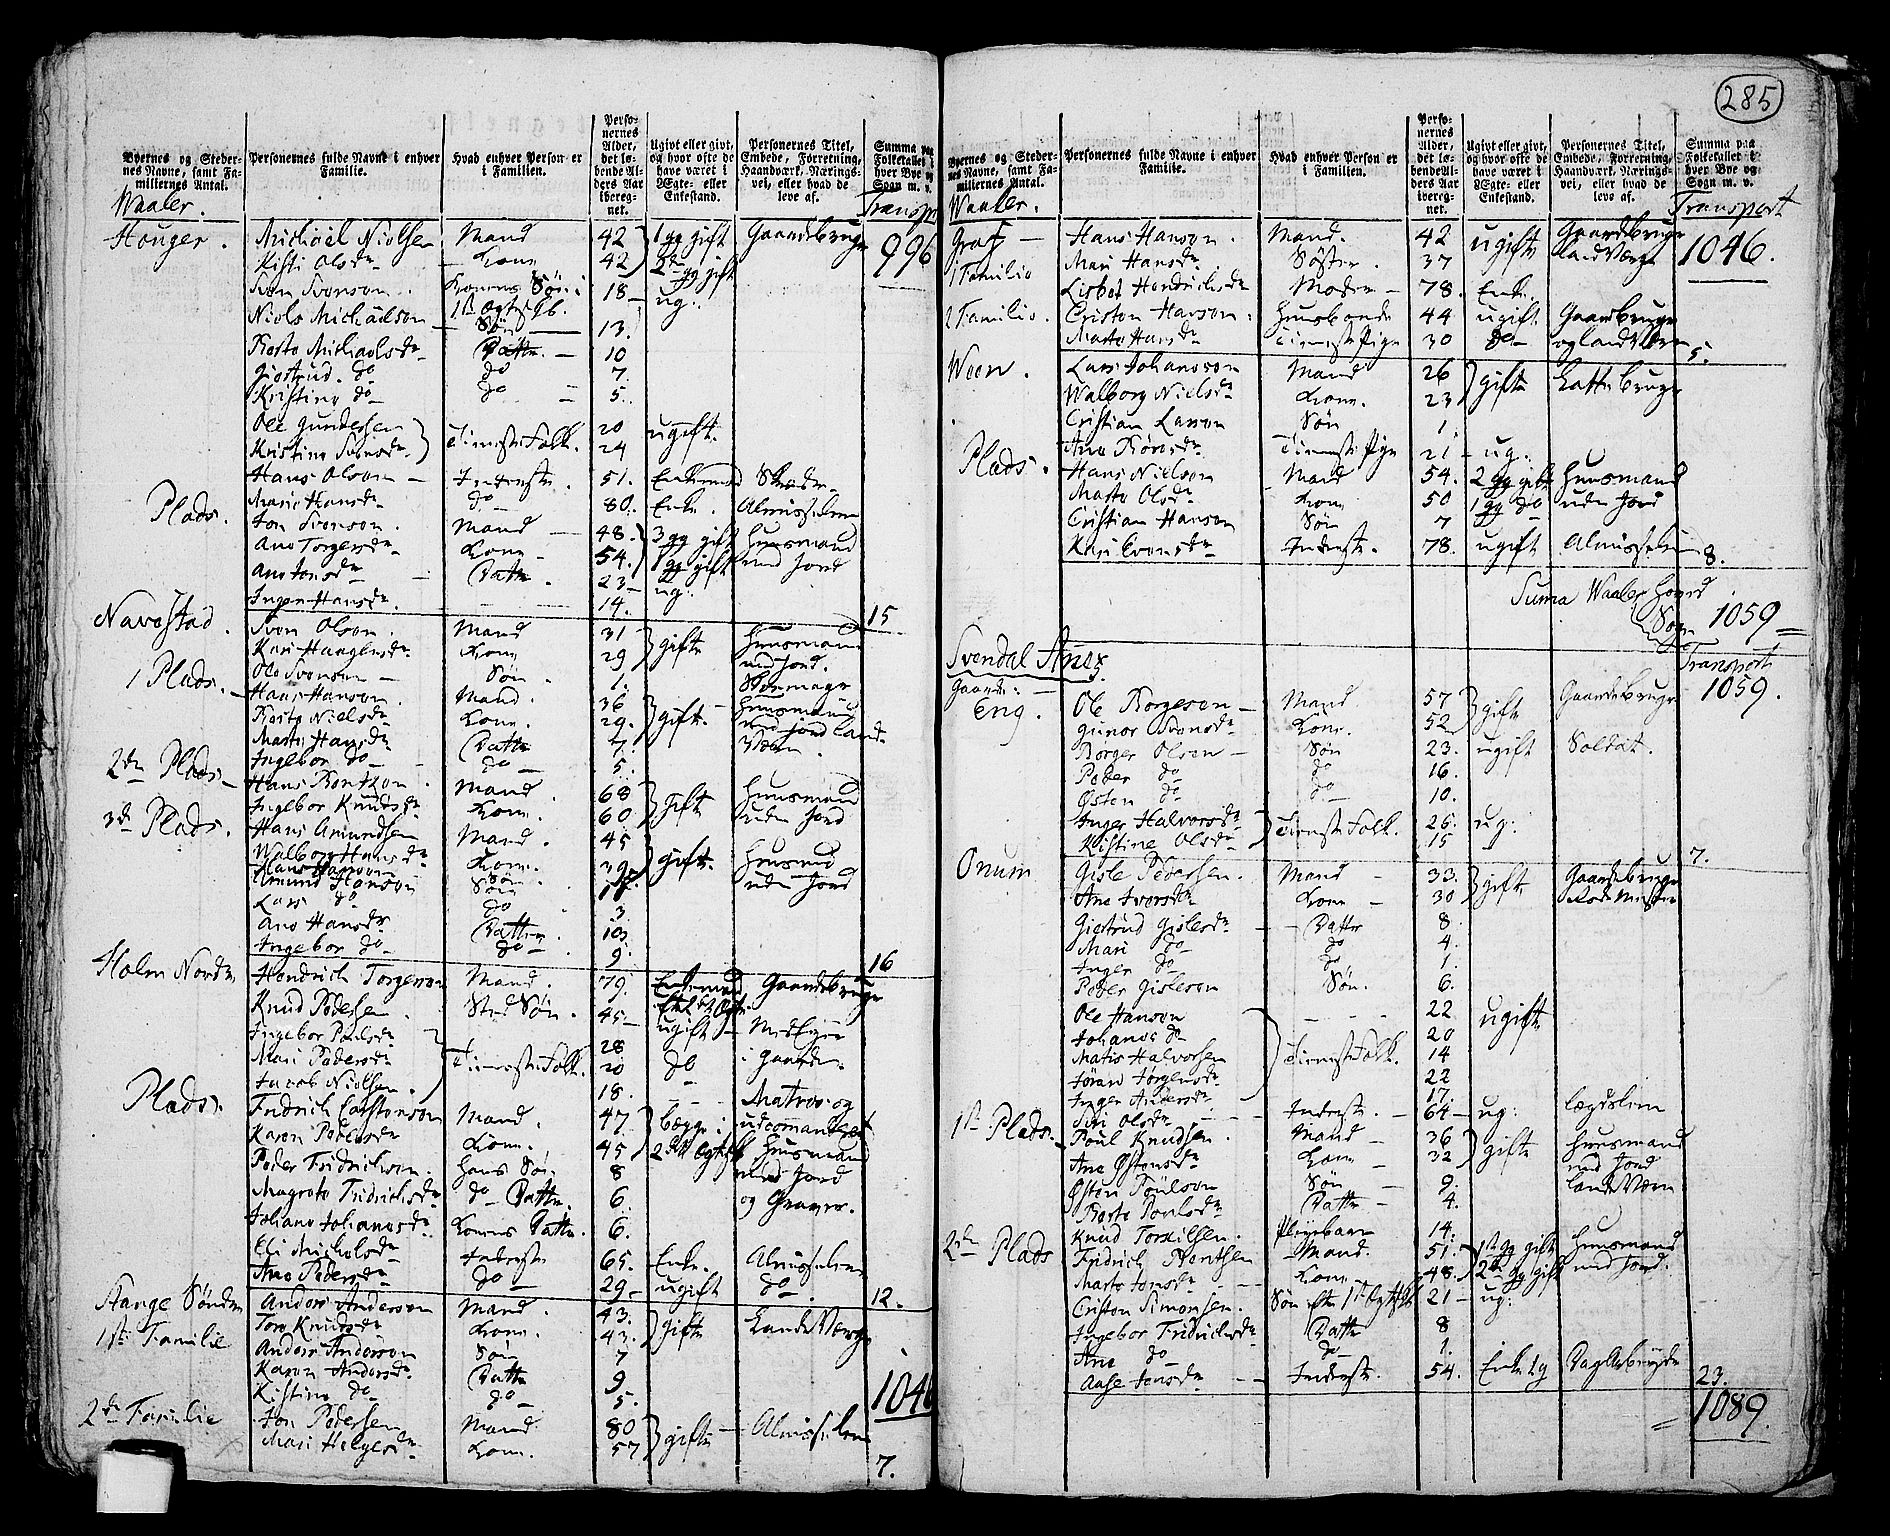 285
Byernes og Steder-
nes Navne, samt Fa-
miliernes Antal.
Personernes fulde Navne i enhver
Familie.
Hvad enhver Person er
i Familien.
Perso-
nernes
Alder,
det lø-
bende Al-
ders Aar
iberegnet.
Ugivt eller givt,
og hvor ofte de
have været i
Ægte- eller
Enkestand.
Personernes Titel,
Embede, Forretning,
Haandværk, Nærings-
vei, eller hvad de
leve af.
Summa paa
Folketallet i
hver Bye og
Sogn m. v.
Waaler. Transp
Houger. Michael Nielsen Mand 42 1 gg gift Gaardebruger 996
Kisti Olsdr Kone 42 2den gg gift
Sven Svenson Konens Søn i 18 ug:
Niels Michaelson 1ste Ægteskb. Søn 13.
Berte Michaelsdr Datter 10
Giertrud do do 7
Kristine do do 5.
Ole Gundersen Tieneste Folk 20 ugift.
Kristine Svensdr 24
Hans Olson Inderste 51. Enkemand Skræder
Marie Hansdr do 80. Enke. Almisselem
Plads. Jon Svenson Mand 48. 3 gg gift Huusmand
Ane Torgersdr Kone 54. 1 gg gift med Jord
Ane Jonsdr Datter 23 ug:
Inger Hansdr 14. 15
Navestad. Sven Olson Mand 31 gifte Huusmand
Kari Haagensdr Kone 29 med Jord.
Ole Svenson Søn 1. Skoemager
1 Plads. Hans Hanson Mand. 36 gift. Huusmand
Berte Nielsdr Kone. 29. med Jord Land
Marte Hansdr Datter 7. Væern
Ingebor do do 5.
2den Plads Hans Bentson Mand 68 gift Huusmand
Ingebor Knudsdr Kone. 60 uden Jord
3de Plads. Hans Amundsen Mand 45 gifte. Huusmd
Walborg Hansdr Kone. 39 uden Jord
Hans Hanson Søn
Amund Hanson Søn
Lars do do 3
Ane Hansdr Datter 10
Ingebor do do 9. 16
Holm Nordre Hendrich Torgerson Mand. 79. Enkemand Gaardebruger
Knud Pedersen Sted Søn. 45 ugift Medeyer
Ingebor Paulsdr Tieneste Folk. 28 i Gaarden
Mari Pedersdr 20 do
Jacob Nielsen. 18.
Plads. Fridrich Carstenson Mand. 47. begge i Matros og
Karen Pedersdr Kone. 45 2det Ægtesk udcomanderet Huusmand
Peder Fridrichson Hans Søn 8 med Jord
Magrete Fridrichsdr do Datter. 6. og Graver.
Johane Johanesdr Konens Datter. 6.
Eli Michelsdr Inderste 65. Enke. Almisselem
Ane Pedersdr do 29 ugift do. 12.
Stange Søndre Anders Anderson Mand. 43. gifte LandeVærge
1ste Familie Tore Knudsdr Kone. 43.
Anders Anderson Søn 7
Karen Andersdr Datter 9
Kistine do do 5. 1046
2den Familie Jon Pedersen Mand 80 gifte Almisselem
Mari Helgesdr Kone. 57 7.
Byernes og Steder-
nes Navne, samt Fa-
miliernes Antal.
Personernes fulde Navne i enhver
Familie.
Hvad enhver Person er
i Familien.
Perso-
nernes
Alder,
det lø-
bende Al-
ders Aar
iberegnet.
Ugivt eller givt,
og hvor ofte de
have været i
Ægte- eller
Enkestand.
Personernes Titel,
Embede, Forretning,
Haandværk, Nærings-
vei, eller hvad de
leve af.
Summa paa
Folketallet i
hver Bye og
Sogn m. v.
Waaler. Transport
Graf Hans Hanson. Mand. 42 ugifte Gaardebruger 1046.
1 Familie Mari Hansdr Søster. 37 LandVærge
Lisbet Hendrichsdr Moder 78. Enke.
2 Familie. Cristen Hanson. Huusbonde 44 ugift Gaardebruger
Marte Hansdr Tieneste Pige 30 do og LandVærn 5.
Ween. Lars Johanson Mand 26 gifte
Walborg Nielsdr Kone. 23
Cristian Larson Søn 1.
Ane Børresdr Tieneste Pige 21 ug:
Plads. Hans Nielson Mand 54. 2 gg gift Huusmand
Marte Olsdr Kone 50 1 gg do uden Jord
Cristian Hanson Søn 7
Kari Evensdr Inderste. 78. ugift Almisselem 8.
Suma Waaler Hoved Sogn 1059
Svendal Anex. Transport
Gaarde: 1059.
Eng. Ole Borgeson Mand 57 gift Gaardebruger
Gunor Svensdr Kone. 52
Borger Olsen Søn 23. ugift Soldat.
Peder do do 16.
Østen do do 10.
Inger Halvorsdr Tieneste Folk. 26. ug:
Kistine Olsdr 15 7.
Onum Gisle Pedersen. Mand 33. gifte Gaardebruger
Ane Iversdr Kone 30 Rodemester
Giertrud Gislesdr Datter 8
Mari do do 4.
Inger do do 1.
Peder Gisleson Søn. 6.
Ole Hanson Tieneste Folk. 22 ugifte
Johanes do 20
Matis Halvorsen 14
Jøran Jørgensdr 22
Inger Andersdr 17.
Siri Olsdr Inderste. 64 ug: Lægdslem
1ste Plads. Poul Knudsen. Mand 36 gifte Huusmand
Ane Østensdr Kone 32 med Jord
Østen Poulson Søn 9. LandeVærn
Berte Poulsdr Datter 4.
Knud Torkilsen. Pleyebaarn 14.
2den Plads Fridrich Bentsen Mand. 51. 1ste gg gift Huusmand
Marte Jensdr Kone 48. 2den gg gift med Jord.
Cristen Simonsen. Søn efter 1ste Ægtesk 21 ug:
Ingebor Fridrichsdr Datter 8
Ane do do 1.
Aase Jensdr Inderste. 54. Enke 1 g 23.
1089.